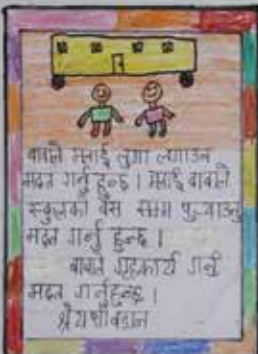 बाबाले मलाई लुगा लगाउन
मद्दत गर्नु हुन्छ । मलाई बाबाले
स्कुलको बस सम्म पुर्‍याउन
मद्दत गर्नु हुन्छ ।
बाबाले गृहकार्य गर्न
मद्दत गर्नुहुन्छ ।